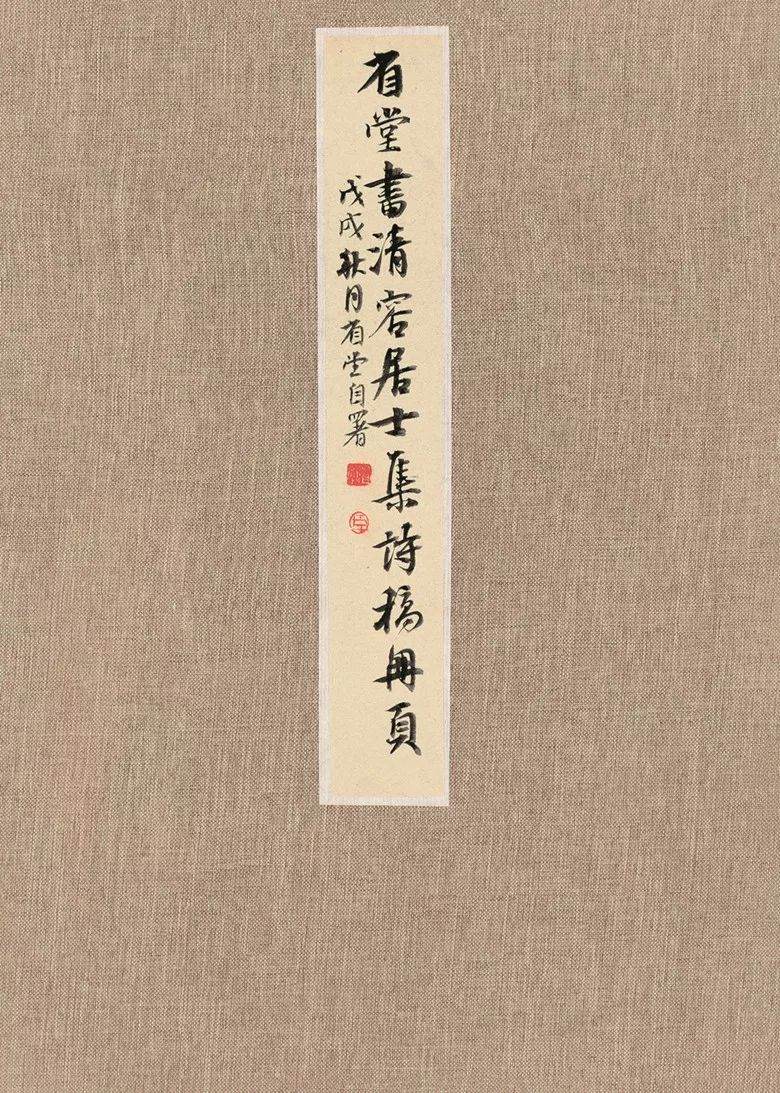 有堂書清容居士集詩稿冊頁
戊戌秋月有堂自署